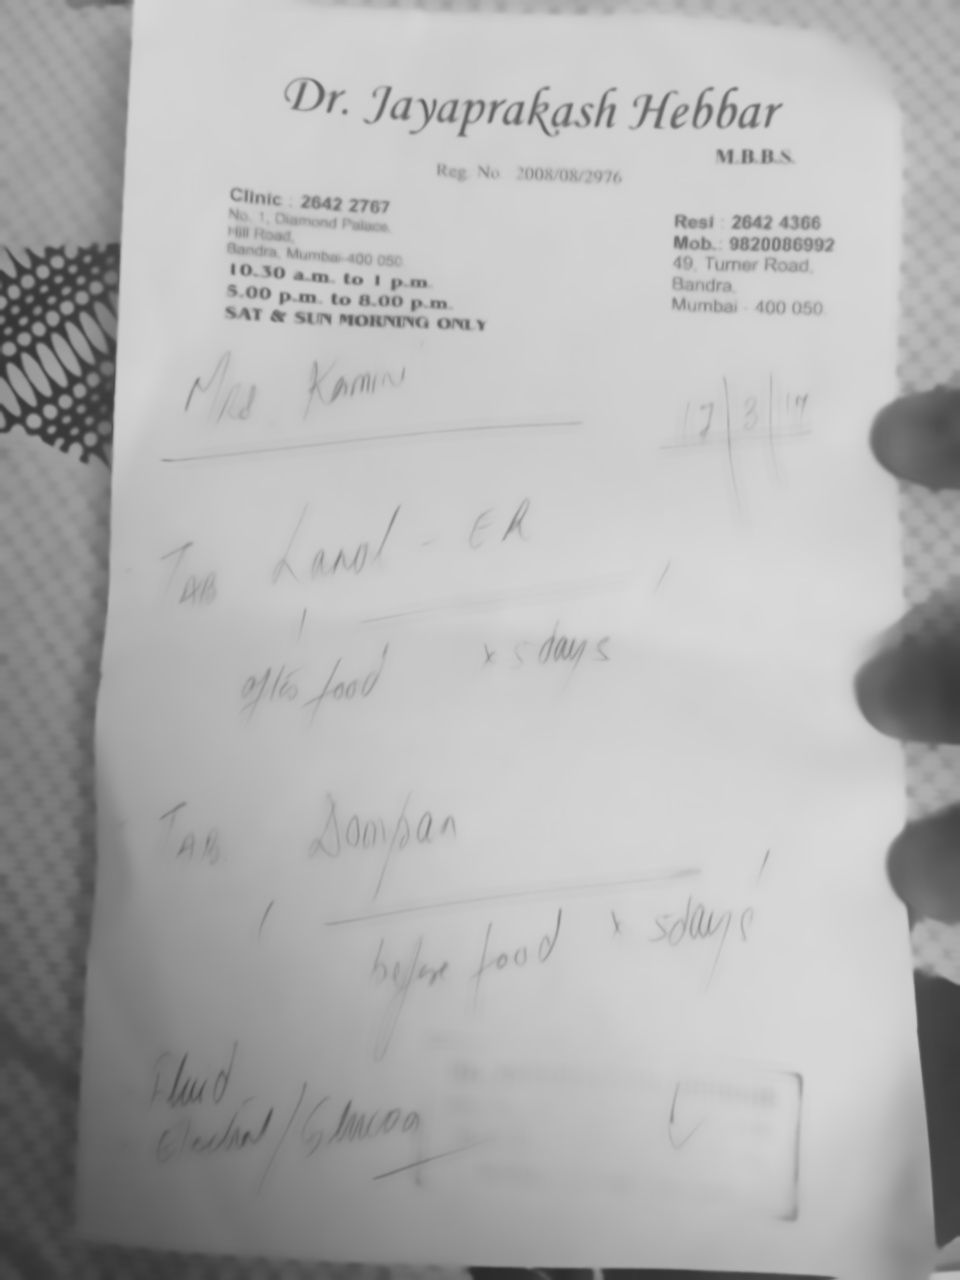 Dr. Jayaprakash Hebbar
M.B.B.S.
Reg. No. 2008/08/2976
Clinic : 2642 2767
No. 1, Diamond Palace,
Hill Road,
Bandra, Mumbai-400 050
10.30 a.m. to 1 p.m.
5.00 p.m. to 8.00 p.m.
SAT & SUN MORNING ONLY
Resi : 2642 4366
Mob.: 9820086992
49, Turner Road,
Bandra,
Mumbai - 400 050
Mrs Kamini
17/3/17
TAB Lanol - ER
1 —— 1
after food x 5 days
TAB Dompan
1 —— 1
before food x 5 days
Fluid
Electral / Glucon